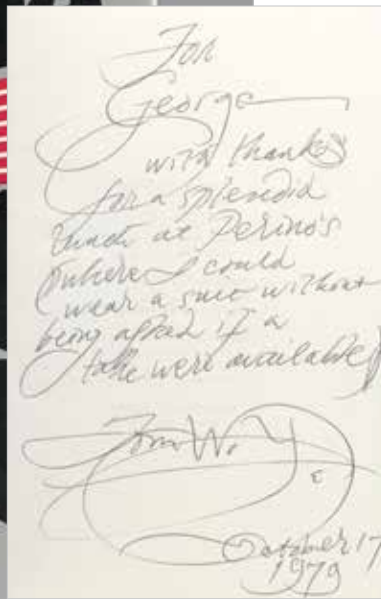 For
George
with thanks
for a splendid
lunch at Perino's
(where I could
wear a suit without
being afraid if a
table were available)
Tom W
October 17
1979